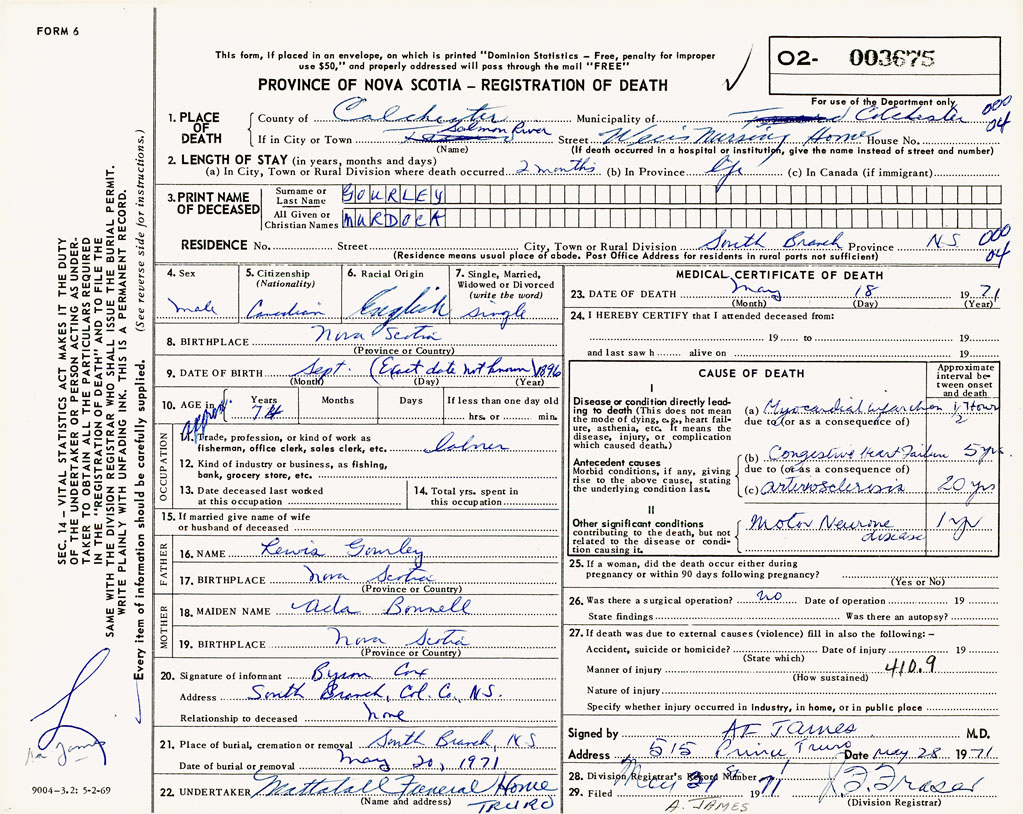 FORM 6
This form, if placed in an envelope, on which is printed "Dominion Statistics – Free, penalty for improper
use $50," and properly addressed will pass through the mail "FREE"
PROVINCE OF NOVA SCOTIA – REGISTRATION OF DEATH
O2- 003675
For use of the Department only
000
04
1. PLACE OF DEATH
County of Colchester Municipality of Colchester
If in City or Town Salmon River Street Nursing Home House No.
(Name) (If death occurred in a hospital or institution, give the name instead of street and number)
2. LENGTH OF STAY (in years, months and days)
(a) In City, Town or Rural Division where death occurred 2 months (b) In Province life (c) In Canada (if immigrant)
3. PRINT NAME OF DECEASED
Surname or Last Name GOURLEY
All Given or Christian Names MURDOCK
RESIDENCE No. Street City, Town or Rural Division South Branch Province N.S. 000 04
(Residence means usual place of abode. Post Office Address for residents in rural parts not sufficient)
4. Sex male
5. Citizenship (Nationality) Canadian
6. Racial Origin English
7. Single, Married, Widowed or Divorced (write the word) single
8. BIRTHPLACE Nova Scotia
(Province or Country)
9. DATE OF BIRTH Sept. (Exact date not known) 1896
(Month) (Day) (Year)
10. AGE in approx. Years 74 Months Days If less than one day old
hrs. or min.
OCCUPATION
11. Trade, profession, or kind of work as
fisherman, office clerk, sales clerk, etc. labner
12. Kind of industry or business, as fishing,
bank, grocery store, etc.
13. Date deceased last worked
at this occupation
14. Total yrs. spent in
this occupation
15. If married give name of wife
or husband of deceased
FATHER
16. NAME Lewis Gourley
17. BIRTHPLACE Nova Scotia
(Province or Country)
MOTHER
18. MAIDEN NAME Ada Bonnell
19. BIRTHPLACE Nova Scotia
(Province or Country)
20. Signature of informant Byron Cox
Address South Branch, Col. Co, N.S.
Relationship to deceased none
21. Place of burial, cremation or removal South Branch, N.S
Date of burial or removal May 20, 1971
22. UNDERTAKER Mattatall Funeral Home
(Name and address) TRURO
MEDICAL CERTIFICATE OF DEATH
23. DATE OF DEATH May 18 1971
(Month) (Day) (Year)
24. I HEREBY CERTIFY that I attended deceased from:
19 to 19
and last saw h alive on 19
CAUSE OF DEATH
Approximate interval between onset and death
I
Disease or condition directly leading to death (This does not mean the mode of dying, e.g., heart failure, asthenia, etc. It means the disease, injury, or complication which caused death.)
(a) Myocardial infarction 1/2 Hour
due to (or as a consequence of)
Antecedent causes
Morbid conditions, if any, giving rise to the above cause, stating the underlying condition last.
(b) Congestive Heart Failure 5 yrs.
due to (or as a consequence of)
(c) arteriosclerosis 20 yrs
II
Other significant conditions contributing to the death, but not related to the disease or condition causing it.
Motor Neurone disease 1 yr
25. If a woman, did the death occur either during
pregnancy or within 90 days following pregnancy?
(Yes or No)
26. Was there a surgical operation? no Date of operation 19
State findings Was there an autopsy?
27. If death was due to external causes (violence) fill in also the following: –
Accident, suicide or homicide? Date of injury 19
(State which)
Manner of injury 410.9
(How sustained)
Nature of injury
Specify whether injury occurred in industry, in home, or in public place
Signed by AF JAMES M.D.
Address 515 Prince Truro Date May 28 1971
28. Division Registrar's Record Number
29. Filed May 31st 1971 J. Fraser
(Division Registrar)
A. JAMES
SEC. 14 – VITAL STATISTICS ACT MAKES IT THE DUTY
OF THE UNDERTAKER OR PERSON ACTING AS UNDER-
TAKER TO OBTAIN ALL THE PARTICULARS REQUIRED
IN THE "REGISTRATION OF DEATH" AND TO FILE THE
SAME WITH THE DIVISION REGISTRAR WHO SHALL ISSUE THE BURIAL PERMIT.
WRITE PLAINLY WITH UNFADING INK. THIS IS A PERMANENT RECORD.
Every item of information should be carefully supplied. (See reverse side for instructions.)
James
9004–3.2: 5-2-69